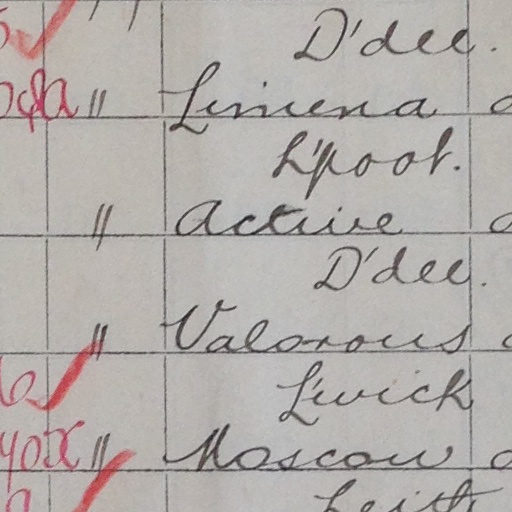 D'dee.
" Limena
L'pool.
" Active
D'dee.
" Valorous
L'wick
" Moscow
Leith